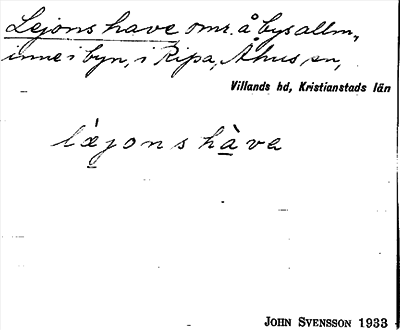 Lejons have omr. å bys allm.,
inne i byn, i Ripa, Åhus sn,
Villands hd, Kristianstads län
læ̀jons hàva
JOHN SVENSSON 1933